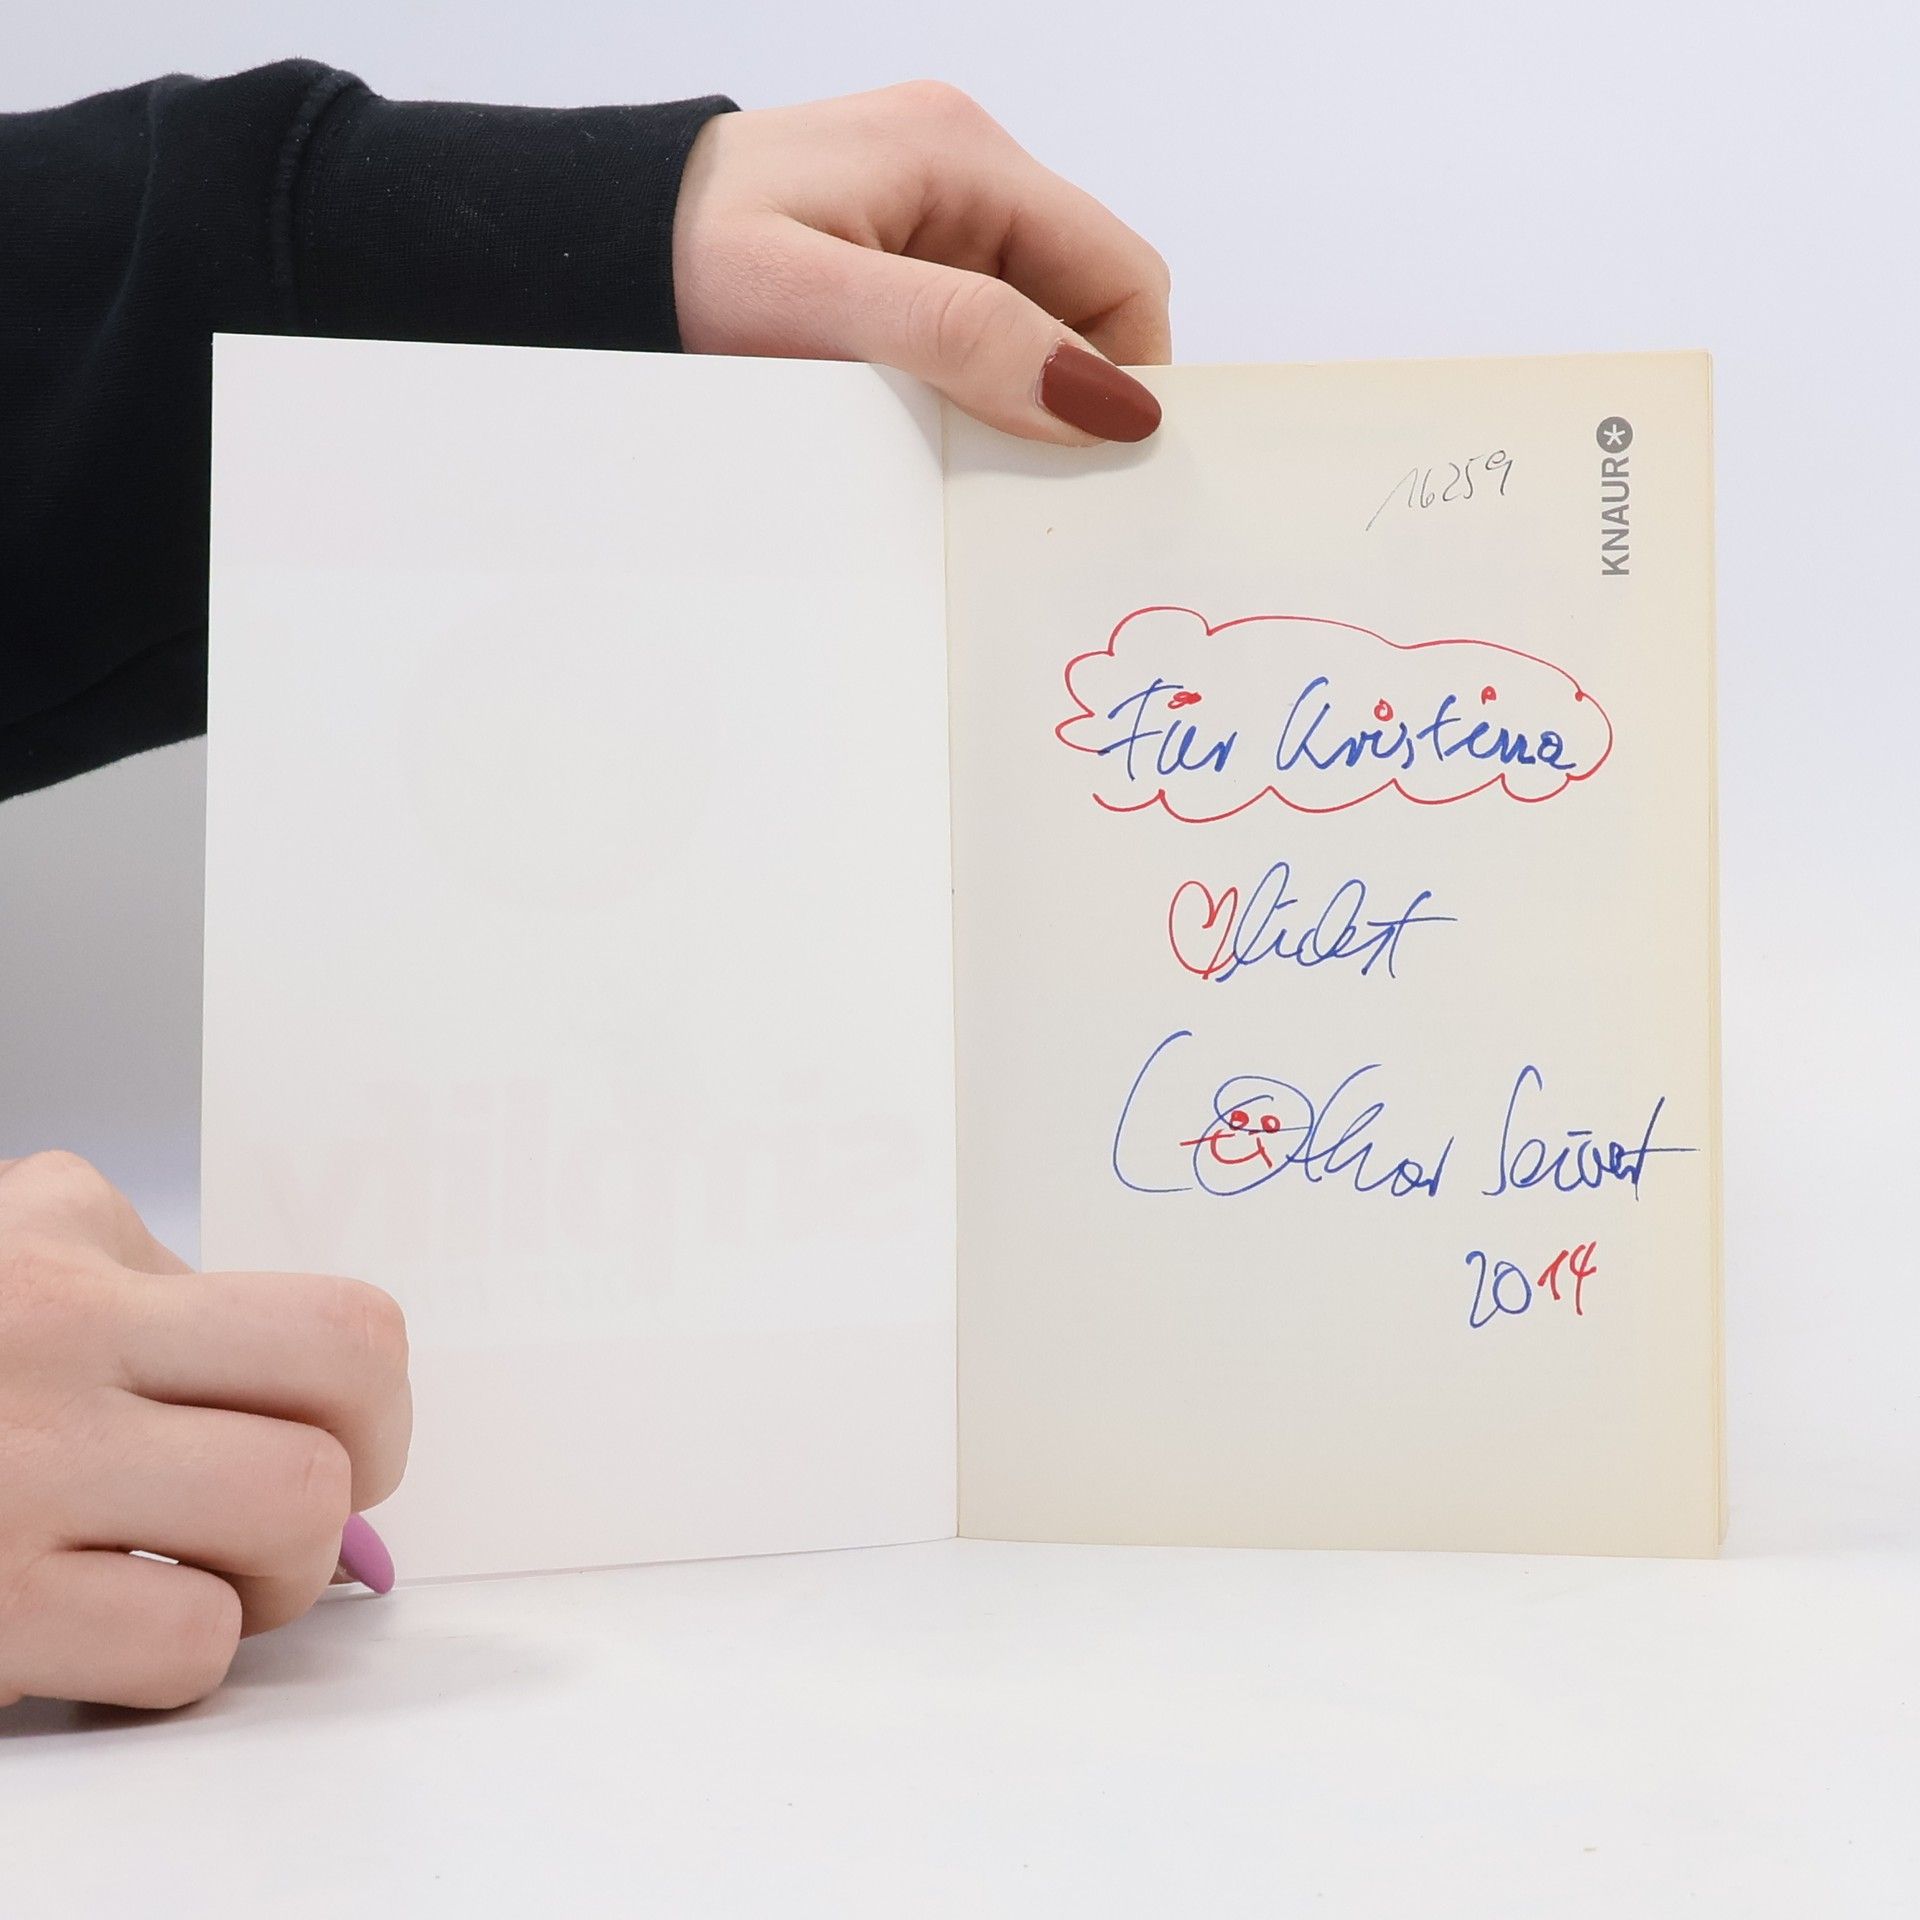 KNAUR
16259
Für Kristina
♡lichst
Lothar Seiwert
2014